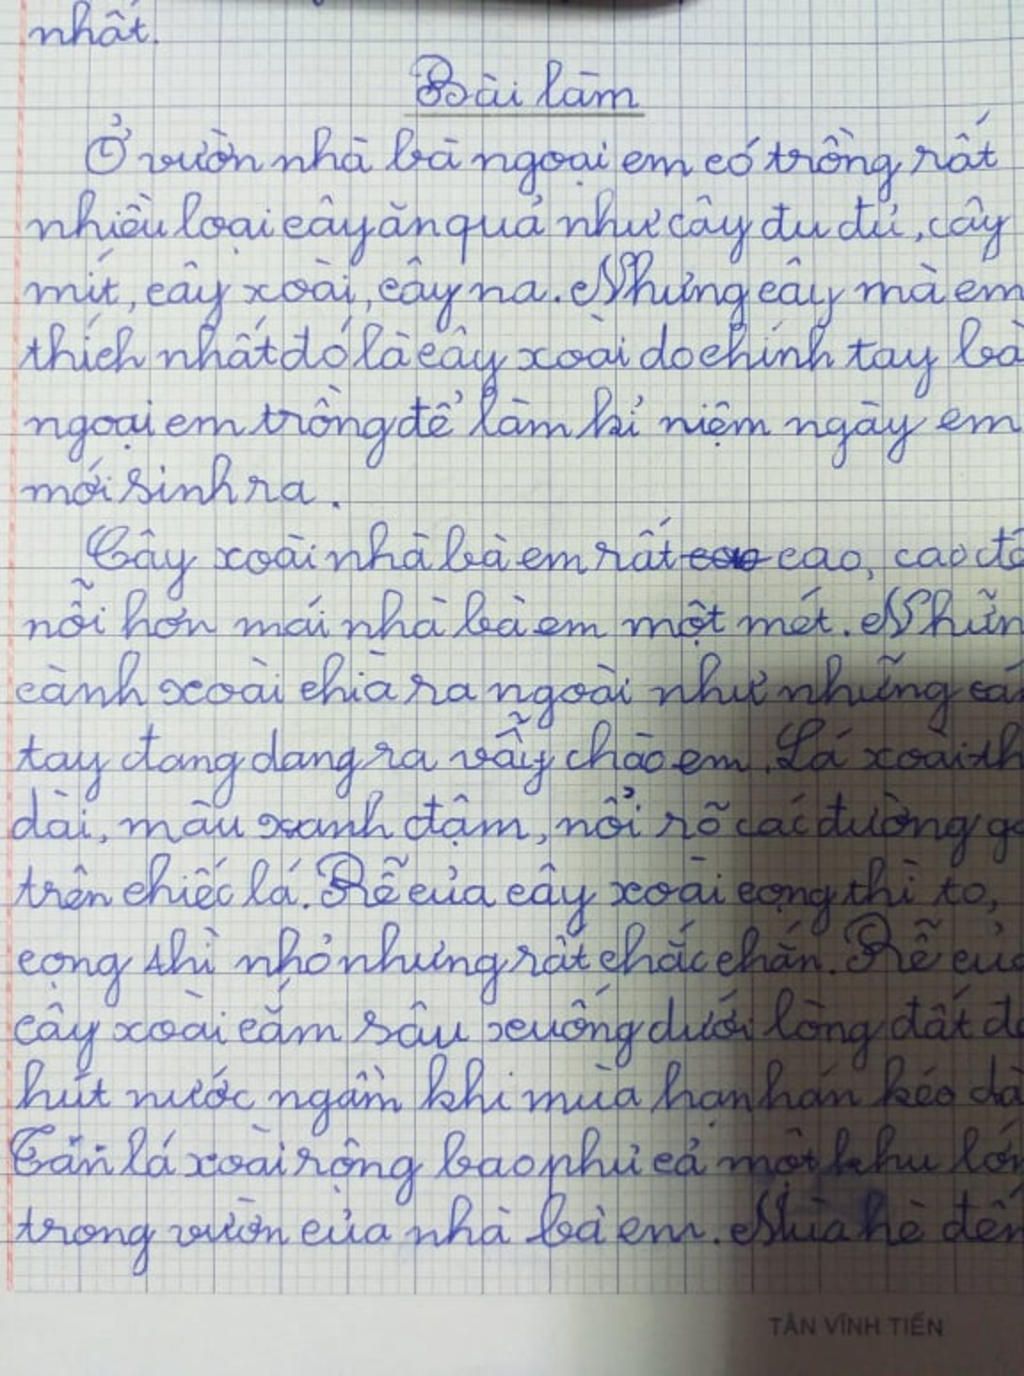 nhất.
Bài làm
Ở vườn nhà bà ngoại em có trồng rất
nhiều loại cây ăn quả như cây đu đủ, cây
mít, cây xoài, cây na. Nhưng cây mà em
thích nhất đó là cây xoài do chính tay bà
ngoại em trồng để làm kỉ niệm ngày em
mới sinh ra.
Cây xoài nhà bà em rất cao, cao độ
nỗi hơn mái nhà bà em một mét.
cành xoài chìa ra ngoài như những
tay đang dang ra vẫy chào em. Lá xoài
dài, màu xanh đậm, nổi rõ các đường
trên chiếc lá. Rễ của cây xoài cọng thì to,
cọng thì nhỏ nhưng rất chắc chắn. Rễ của
cây xoài cắm sâu xuống dưới lòng đất
hút nước ngầm khi mùa hạn hán kéo
Tán lá xoài rộng bao phủ cả một khu
trong vườn của nhà bà em. Mùa hè đến
TÂN VĨNH TIẾN